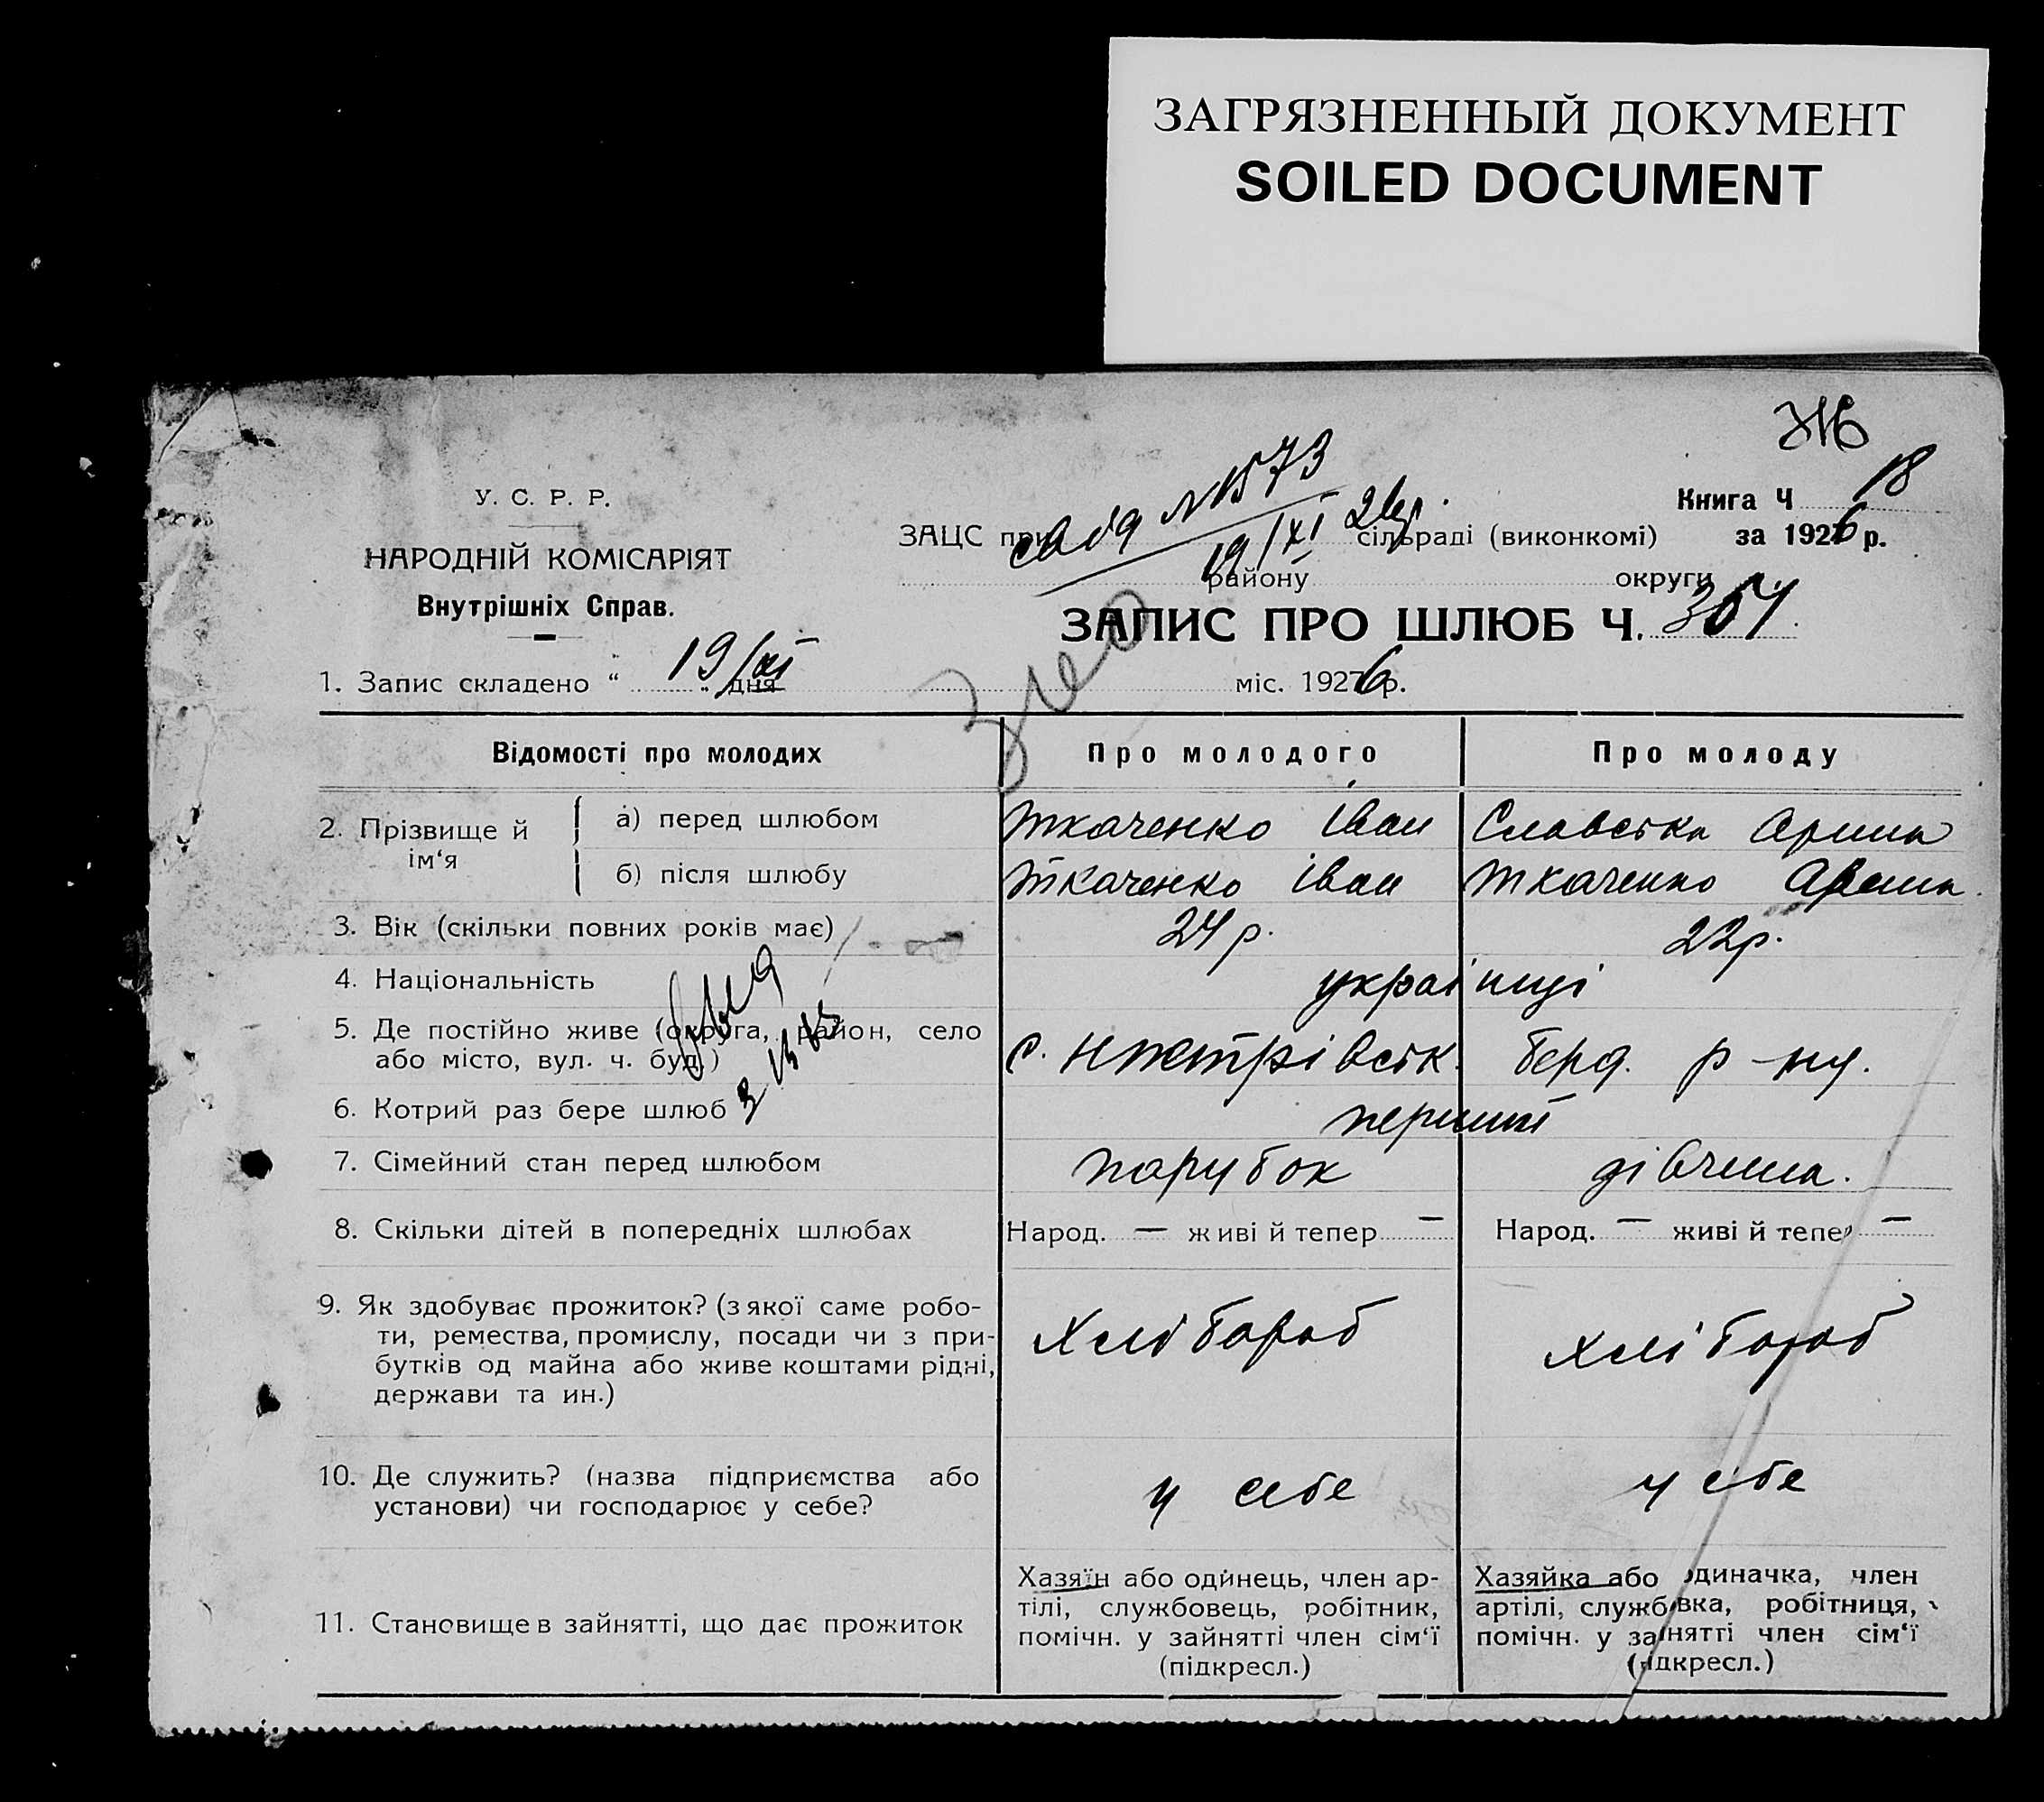 ЗАГРЯЗНЕННЫЙ ДОКУМЕНТ
SOILED DOCUMENT
Книга Ч 18
за 1926 р.
У. С. Р. Р.
НАРОДНІЙ КОМІСАРІЯТ
Внутрішніх Справ.
N 1573
19/XI 26р.
ЗАЦС при сільраді (виконкомі)
району округи
ЗАПИС ПРО ШЛЮБ Ч. 354
1. Запис складено “ 19/XI „ дня міс. 1926 р.
Відомості про молодих Про молодого Про молоду
2. Прізвище й ім‘я
а) перед шлюбом Ткаченко Іван Славська Арина
б) після шлюбу Ткаченко Іван Ткаченко Арина
3. Вік (скільки повних років має) 24 р. 22р.
4. Національність українці
5. Де постійно живе (округа, район, село
або місто, вул. ч. буд.) с. Берд. р-ну.
6. Котрий раз бере шлюб перший
7. Сімейний стан перед шлюбом парубок дівчина.
8. Скільки дітей в попередніх шлюбах Народ. — живі й тепер — Народ. — живі й тепер —
9. Як здобуває прожиток? (з якої саме робо-
ти, ремества, промислу, посади чи з при-
бутків од майна або живе коштами рідні,
держави та ин.) Хлібороб хлібороб
10. Де служить? (назва підприємства або
установи) чи господарює у себе? у себе у себе
11. Становище в зайнятті, що дає прожиток
Хазяїн або одинець, член ар-
тілі, службовець, робітник,
помічн. у зайнятті член сім‘ї
(підкресл.)
Хазяйка або одиначка, член
артілі, службовка, робітниця,
помічн. у зайнятті член сім‘ї
(підкресл.)